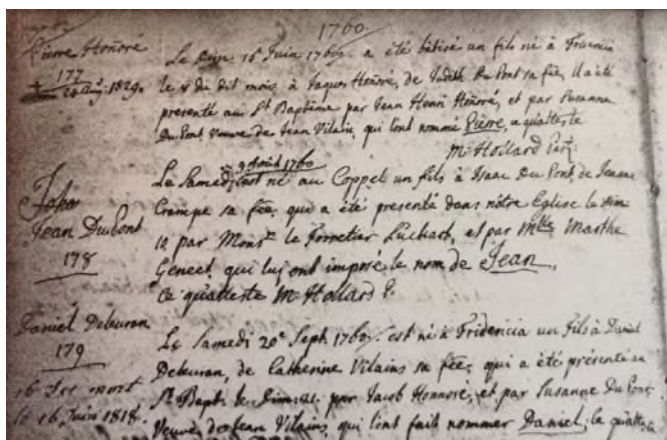 1760.
Pierre Honoré
177
1829.
Le Dim. 15e Juin 1760. a été bâtisé un fils né à Fridericia
le du dit mois, à Jaques Honoré, de Judith Du Pont sa fée, il a été
presenté au St Baptême par Jean Henri Honoré, et par Susanne
Du Pont Veuve de Jean Vilain, qui l'ont nommé Pierre, ce qu'atteste
M Hollard Pastr
9 Août 1760
Le Samedi est né au Coppel un fils à Isaac Du Pont, de Jeanne
Crempe sa fée, qui a été presenté dans nôtre Eglise le dim
10 par Monsr le Forretier Luchart, et par Mlle Marthe
Geneet, qui luy ont imposé le nom de Jean,
Ce qu'atteste M Hollard P.
Jean DuPont
178
Daniel Deleuran
179
mort
le 16 Juin 1818.
Le Samedi 20e Sept 1760. est né à Fridericia un Fils à Daniel
Deleuran, de Catherine Vilains sa fée, qui a été présenté au
St Bapt. le Dim. par Jacob Honnoré, et par Susanne Du Pont
Veuve de Jean Vilains, qui l'ont fait nommer Daniel, ce qu'atteste